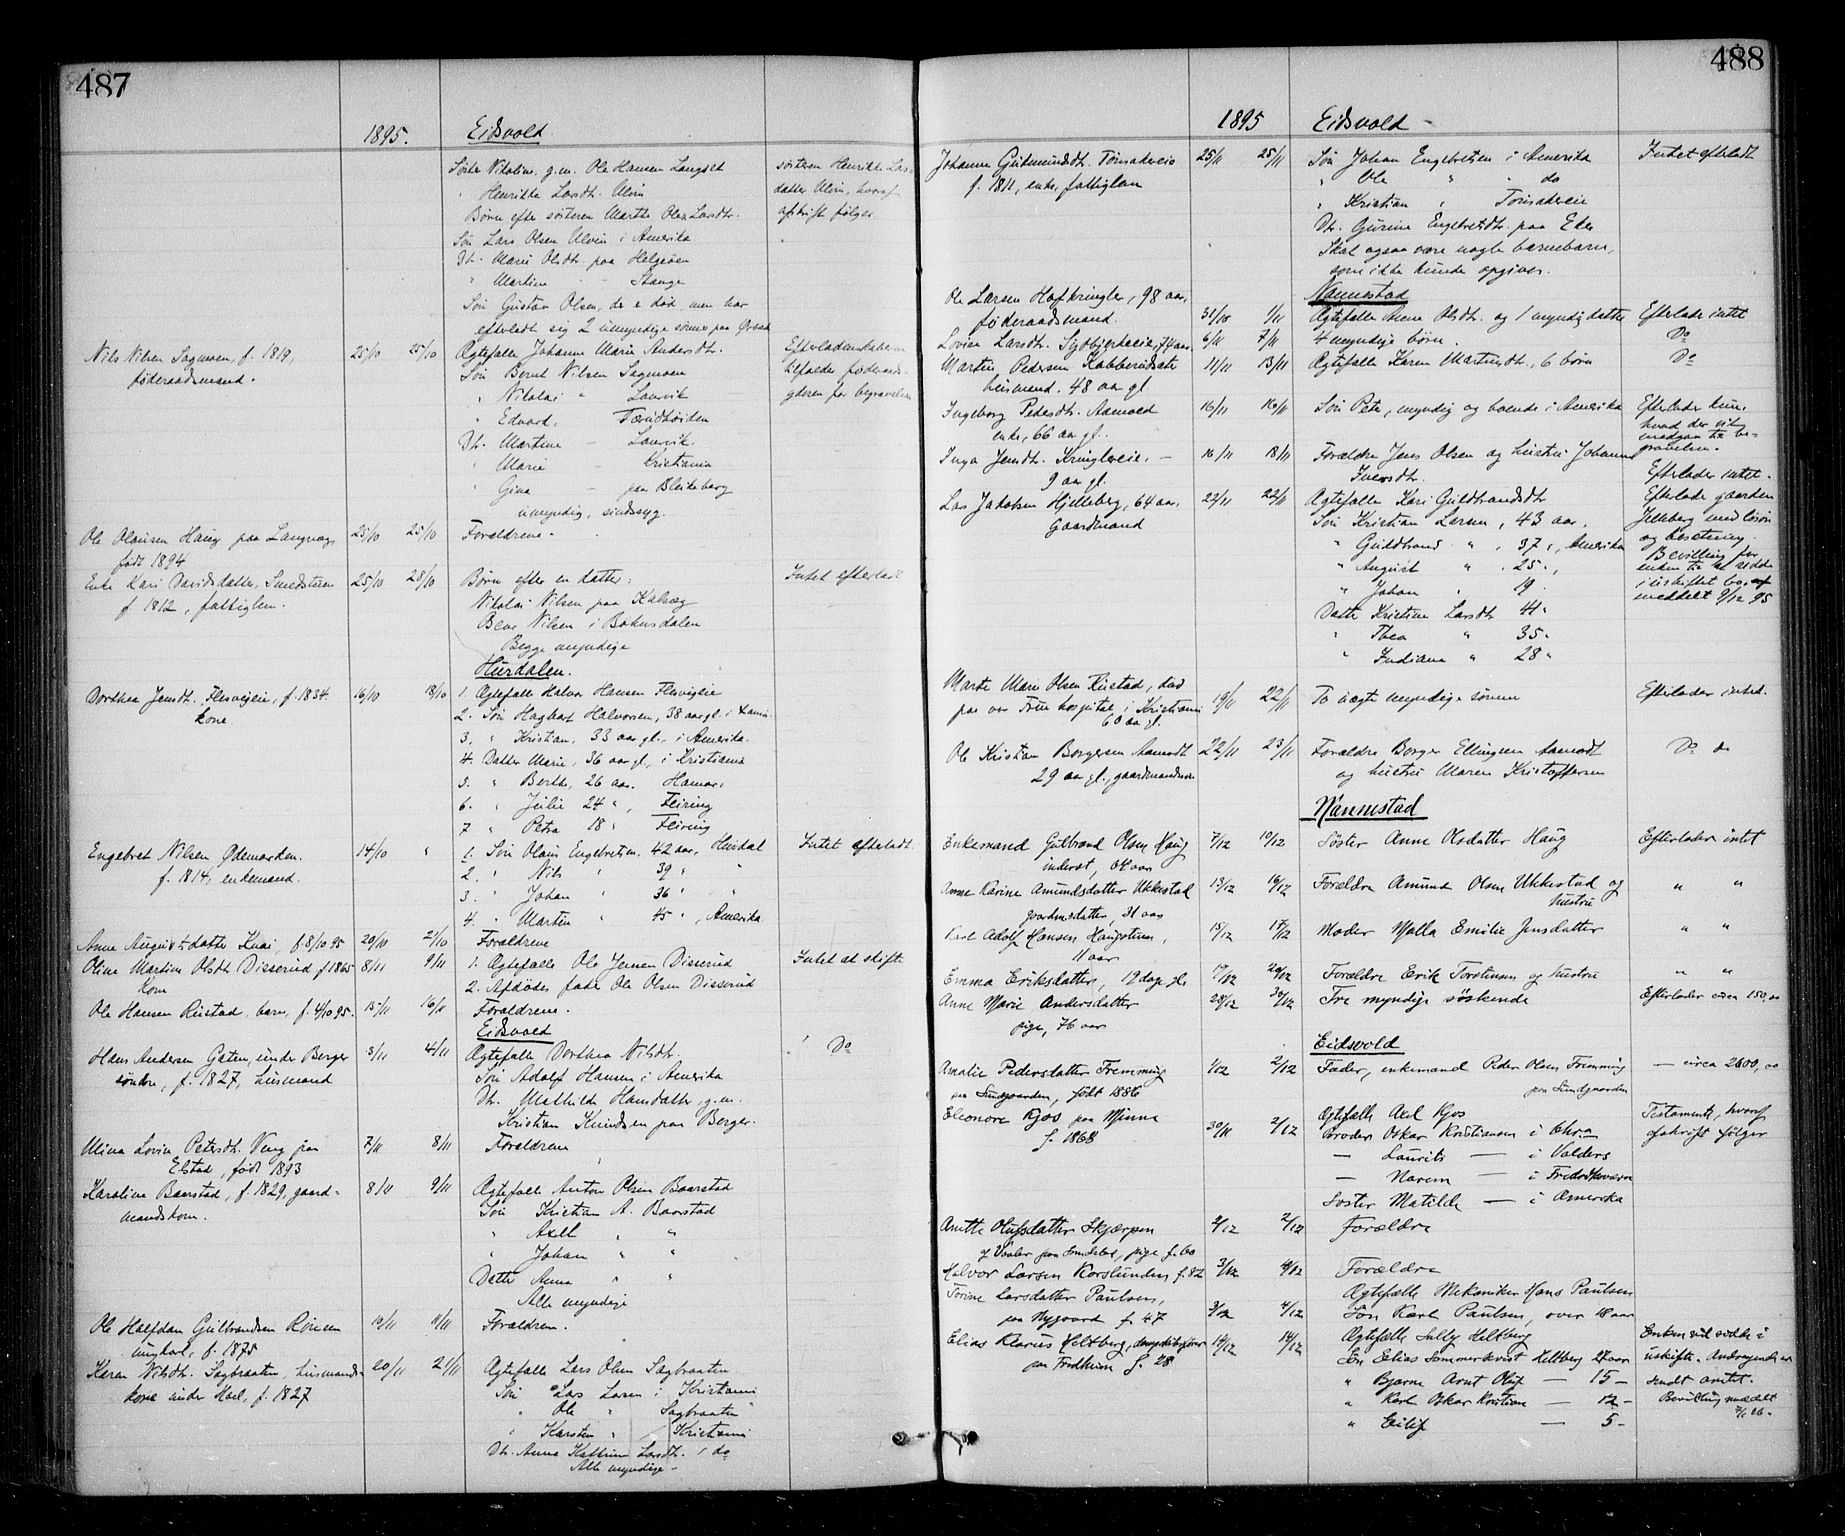 487
1895.
Eidsvold
Søster Nikoline, g.m. Ole Hansen Langset
" Henrikke Larsdt. Ulvin
Børn efter søsteren Marthe Olea Larsdt.
Søn Lars Olsen Ulvin i Amerika
Dt. Marie Olsdt. paa Helgøen
" Martine - Stange
Søn Gustav Olsen, der er død, men har
efterladt sig 2 umyndige sønner paa
søsteren Henrikke Lars-
datter Ulvin, hvoraf
afskrift følger
Nils Nilsen Sagmoen, f. 1819,
føderaadsmand.
25/10 25/10
Ægtefælle Johanne Marie Andersdt.
Søn Bernt Nilsen Sagmoen
" Nikolai " Laurvik
" Edvard,
Dt. Martine - Laurvik
" Marie - Kristiania
" Gina - paa Blekeberg
umyndig, sindssyg.
Efterladenskaberne
tilfalder føderaads-
yderen for begravelsen
Ole Olausen Haug paa Langvag,
født 1894
25/10 25/10
Forældrene.
Enke Kari Davidsdatter, Smedstuen
f 1812, fattiglem.
25/10 28/10
Børn efter en datter:
Nikolai Nilsen paa
Nilsen i Bøhnsdalen
Begge myndige
Intet efterladt
Hurdalen.
Dorthea Jensdt. Flesvigeie, f. 1834
kone
16/10 18/10
1. Ægtefælle Halvor Hansen Flesvigeie
2. Søn Hagbart Halvorsen, 38 aar gl. i
3. " Kristian, 33 aar gl., i Amerika.
4. Datter Marie, 36 aar gl., i Kristiania
5. " Berthe, 26 aar. Hamar.
6. " Julie 24 ", Feiring
7 " Petra 18 " Feiring
Engebret Nilsen Ødemarken.
f. 1814, enkemand.
14/10 "
1. Søn Olaus Engebretsen, 42 aar, Hurdal
2. " Nils " 39 " "
3. " Johan " 36 " "
4. " Martin " 45 ", Amerika
Intet efterladt.
Anna Augustdatter Knai f. 8/10 95
20/10 21/10
Forældrene
Oline Martine Olsdt. Disserud f 1865
kone
8/11 9/11
1. Ægtefælle Ole Jensen Disserud
2. Afdødes fader Ole Olsen Disserud
Intet at skifte
Ole Hansen Rustad, barn, f. 4/10 95.
15/11 16/11
Forældrene.
Eidsvold
Hans Andersen Gaten, under Berger
søndre, f. 1827, husmand
3/11 4/11
Ægtefælle Dorthea Nilsdt.
Søn Adolf Hansen i Amerika
Dt. Mathilde Hansdatter, g.m.
Kristian Knudsen paa Berger.
Do
Mina Lovise Petersdt. Veng paa
Elstad, født 1893
7/11 8/11
Forældrene
Karoline Baarstad, f. 1829, gaard-
mandskone.
8/11 9/11
Ægtefælle Anton Olsen Baarstad
Søn Kristian A. Baarstad
" Axel " "
" Johan " "
Datter Anna " "
Alle myndige
Ole Halfdan Gulbrandsen
ungkarl, f. 1875
10/11 11/11
Forældrene.
Karen Nilsdt. Sagbraaten, husmands-
kone under Hoel, f. 1827
20/11 21/11
Ægtefælle Lars Olsen Sagbraaten
Søn Lars Larsen i Kristiania
" Ole " Sagbraaten
" Karsten " Kristiania
Dt. Anna Kathrine Larsdt. i do
Alle myndige -
488
1895
Eidsvold
Johanne Gudmundsdt. Tømtereie
f. 1811, enke, fattiglem
25/11 25/11
Søn Johan Engebretsen i Amerika
" Ole " " do
" Kristian "
Dt. Gurine Engebretsdt. paa Eker
Skal ogsaa være nogle barnebarn,
som ikke kunde opgives.
Intet efterladt
Nannestad
Ole Larsen Hofkringler, 98 aar,
føderaadsmand.
31/10 1/11
Ægtefælle Anne Olsdt. og 1 myndig datter
Efterlader intet
Lovise Larsdt. 74 aar
6/11 7/11
4 myndige børn.
Do
Martin Pedersen Kabberudsæter
husmand. 48 aar gl.
11/11 13/11
Ægtefælle Karen Martinsdt., 6 børn
Do
Ingeborg Pedersdt. Aamold
enke, 66 aar gl.
16/11 16/11
Søn Peter, myndig og boende i Amerika
Efterlader kun,
hvad der vil
medgaa til be-
gravelsen.
Inga Jensdt. Kringlereie. -
9 aar gl.
16/11 18/11
Forældre Jens Olsen og hustru Johanne
Iversdt.
Efterlader intet.
Lars Jakobsen Hjelleberg, 64 aar,
Gaardmand
22/11 22/11
Ægtefælle Kari Guldbrandsdt
Søn Kristian Larsen, 43 aar.
" Guldbrand " , 37 ", Amerika
" August " , 25 ",
" Johan " 19 "
Datter Kristine Larsdt 41 "
" Thea " 35 "
" Indiane " 28 "
Efterlader gaarden
Jelleberg med løsøre
og besetning.
Bevilling for
enken til at sidde
i uskiftet bo
meddelt 9/12 95
Marte Marie Olsen Rustad, død
paa vor Frue hospital i Kristiania
60 aar gl.
19/11 22/11
To uægte myndige sønner
Efterlader intet.
Ole Kristian Borgersen Aamodt
29 aar gl., gaardmandssøn
22/11 23/11
Forældre Borger Ellingsen Aamodt
og hustru Maren Kristoffersen
Do do
Nannestad
Enkemand Gulbrand Olsen Haug
inderst, 64 aar
7/12 10/12
Søster Anne Olsdatter Haug
Efterlader intet
Anne Karine Amundsdatter Ukkestad
gaardmdsdatter, 31 aar
13/12 16/12
Forældre Amund Olsen Ukkestad og
hustru
" "
Karl Adolf Hansen Haugstuen,
11 aar
15/12 17/12
Moder Malla Emilie Jensdatter
" "
Emma Eriksdatter, 19 dage gl
17/12 20/12
Forældre Erik Torstensen og hustru
" "
Anne Marie Andersdatter
pige, 76 aar
28/12 30/12
Tre myndige søskende
Efterlader circa 150,00
Eidsvold
Amalie Pedersdatter Fremming
paa Sundgaarden, født 1886
1/12 2/12
Fader, enkemand Peder Olsen Fremming
paa Sundgaarden
- circa 2600,00
Eleonore Kjos paa Minne
f. 1868
30/11 2/12
Ægtefælle Axel Kjos
Broder Oskar Kristiansen i Chra
- Laurits - i Valders
- Maren - i Fredriksværn
Søster Matilde - i Amerika
Testamente, hvoraf
afskrift følger
Anette Olufsdatter Skjærpen
af Vaaler paa Sundstad, pige f. 60
2/12 2/12
Forældre
Halvor Larsen Korslunden f. 82
3/12 4/12
Forældre
Torine Larsdatter Paulsen,
paa Nygaard f. 47
3/12 4/12
Ægtefælle Mekaniker Hans Paulsen
Søn Karl Paulsen, over 18 aar
Elias Klarius Heltberg,
paa Fredheim f. 28
14/12 14/12
Ægtefælle Sully Heltberg
Søn Elias Sommerkvist Heltberg 27 aar
" Bjarne Arnt Oluf - 15 -
" Karl Oskar Kristian - 12 -
" Eilif - 5 -
Enken vil sidde i
uskifte. Andragende er
sendt amtet.
Bevilling meddelt
7/1 96.